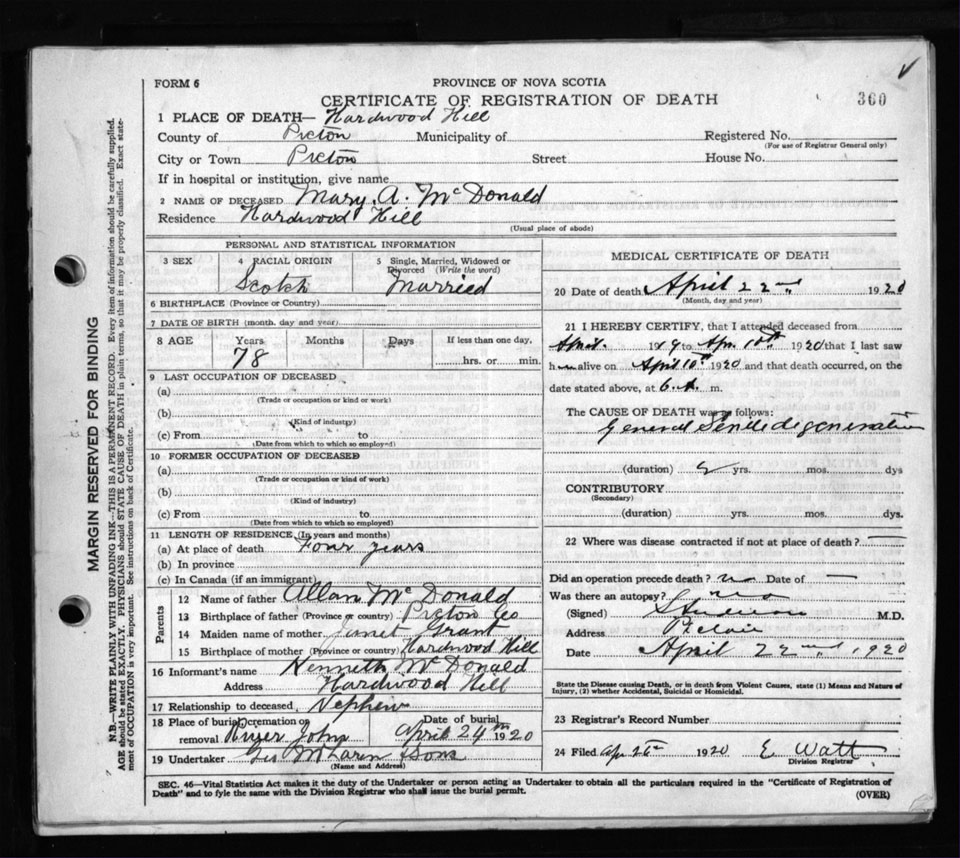 FORM 6
PROVINCE OF NOVA SCOTIA
CERTIFICATE OF REGISTRATION OF DEATH
360
1 PLACE OF DEATH— Hardwood Hill
County of Pictou Municipality of Registered No.
(For use of Registrar General only)
City or Town Pictou Street House No.
If in hospital or institution, give name
2 NAME OF DECEASED Mary A. McDonald
Residence Hardwood Hill
(Usual place of abode)
PERSONAL AND STATISTICAL INFORMATION
3 SEX 4 RACIAL ORIGIN 5 Single, Married, Widowed or Divorced (Write the word)
Scotch Married
6 BIRTHPLACE (Province or Country)
7 DATE OF BIRTH (month, day and year)
8 AGE Years Months Days If less than one day,
78 hrs. or min.
9 LAST OCCUPATION OF DECEASED
(a)
(Trade or occupation or kind or work)
(b)
(Kind of industry)
(c) From to
(Date from which to which so employed)
10 FORMER OCCUPATION OF DECEASED
(a)
(Trade or occupation or kind of work)
(b)
(Kind of industry)
(c) From to
(Date from which to which so employed)
11 LENGTH OF RESIDENCE (In years and months)
(a) At place of death Four years
(b) In province
(c) In Canada (if an immigrant)
Parents
12 Name of father Allan McDonald
13 Birthplace of father (Province or country) Pictou Co
14 Maiden name of mother Janet Grant
15 Birthplace of mother (Province or country) Hardwood Hill
16 Informant's name Kenneth McDonald
Address Hardwood Hill
17 Relationship to deceased Nephew
18 Place of burial, cremation or removal River John Date of burial April 24th 1920
19 Undertaker & Sons
(Name and Address)
MEDICAL CERTIFICATE OF DEATH
20 Date of death April 22nd 1920
(Month, day and year)
21 I HEREBY CERTIFY, that I attended deceased from
1919 to Apr. 10th 1920 that I last saw
h alive on April 10th 1920 and that death occurred, on the
date stated above, at 6 A. m.
The CAUSE OF DEATH was as follows:
General Senile degeneration
(duration) 2 yrs. mos. dys
CONTRIBUTORY
(Secondary)
(duration) yrs. mos. dys.
22 Where was disease contracted if not at place of death? —
Did an operation precede death? no Date of —
Was there an autopsy? no
(Signed) M.D.
Address
Date April 22nd, 1920
State the Disease causing Death, or in death from Violent Causes, state (1) Means and Nature of
Injury, (2) whether Accidental, Suicidal or Homicidal.
23 Registrar's Record Number
24 Filed Apr 1920 E Watt
Division Registrar
SEC. 46—Vital Statistics Act makes it the duty of the Undertaker or person acting as Undertaker to obtain all the particulars required in the "Certificate of Registration of
Death" and to fyle the same with the Division Registrar who shall issue the burial permit. (OVER)
MARGIN RESERVED FOR BINDING
N.B.—WRITE PLAINLY WITH UNFADING INK—THIS IS A PERMANENT RECORD. Every item of information should be carefully supplied.
AGE should be stated EXACTLY. PHYSICIANS should STATE CAUSE OF DEATH in plain terms, so that it may be properly classified. Exact state-
ment of OCCUPATION is very important. See instructions on back of Certificate.